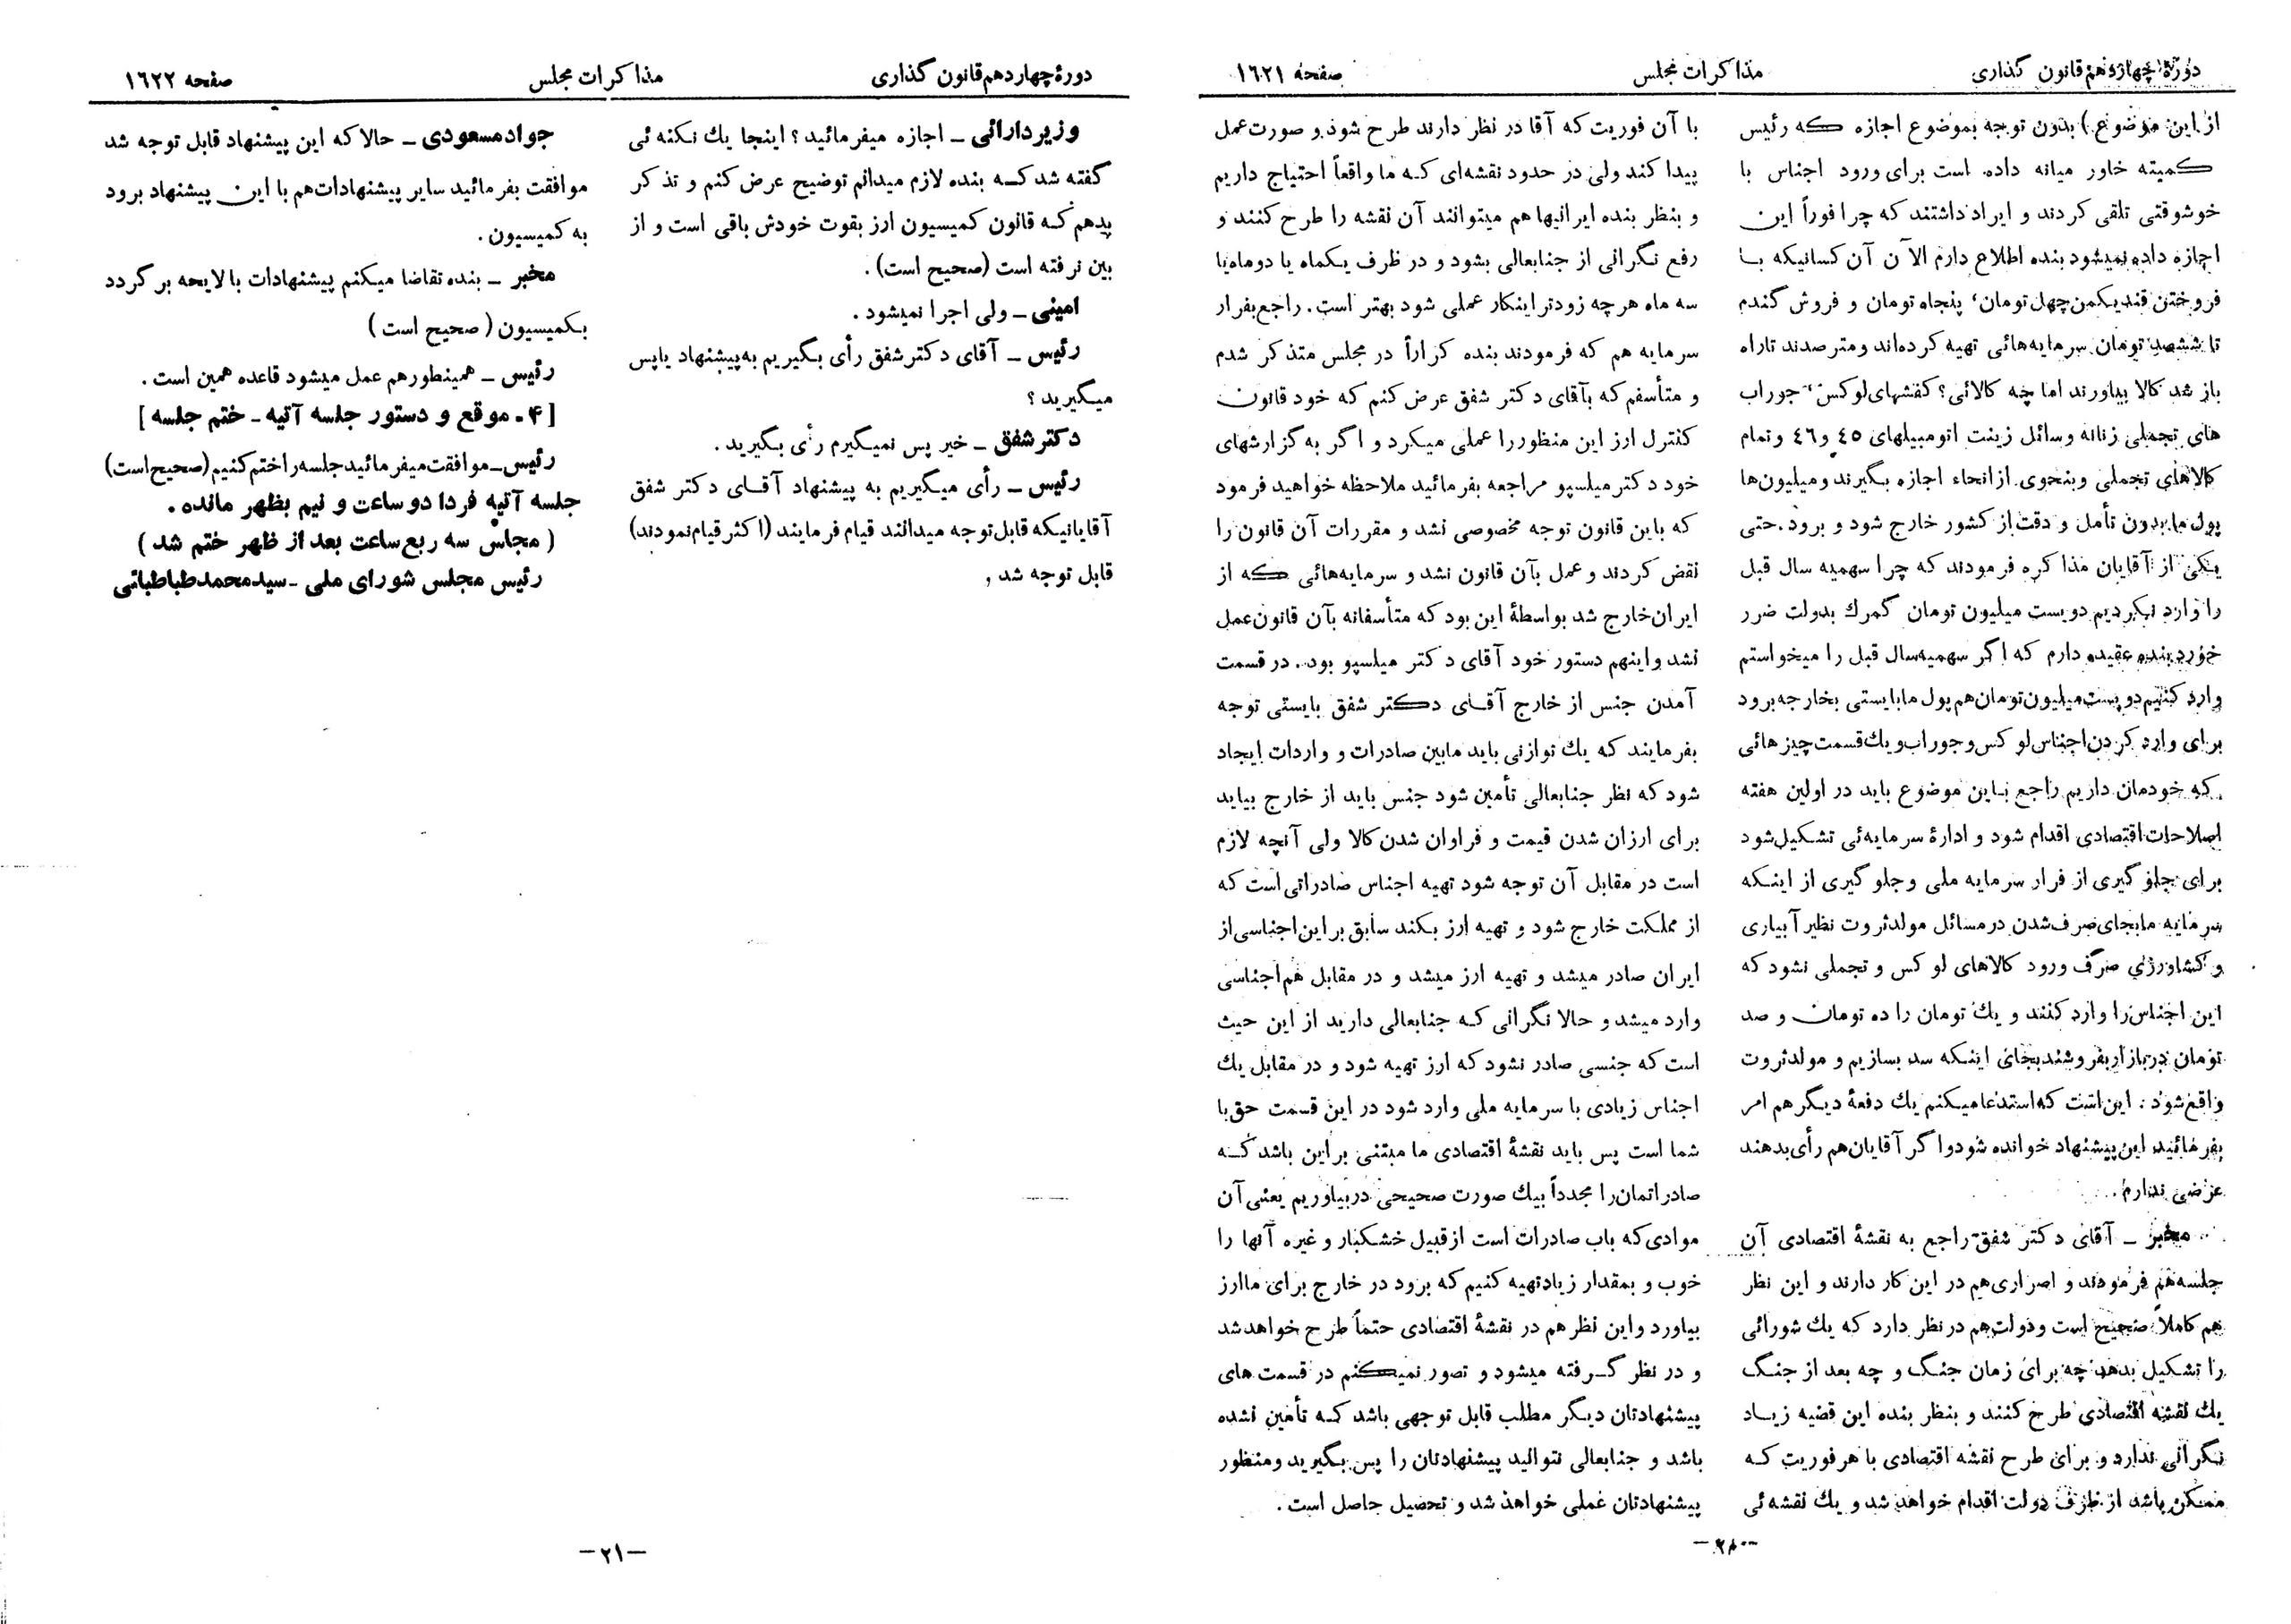 دورهٔ چهاردهم قانون گذاری
مذاکرات مجلس
صفحه ۱۶۲۱
از این موضوع) بدون توجه بموضوع اجازه که رئیس
کمیته خاور میانه داده است برای ورود اجناس با
خوشوقتی تلقی کردند و ایراد داشتند که چرا فوراً این
اجازه داده نمیشود بنده اطلاع دارم الآن آن کسانیکه با
فروختن قند یکمن چهل تومان، پنجاه تومان و فروش گندم
تا ششصد تومان سرمایه‌هائی تهیه کرده‌اند و مترصدند تا راه
باز شد کالا بیاورند اما چه کالائی؟ کفشهای لوکس، جوراب
های تجملی زنانه وسائل زینت اتومبیلهای ٤٥ و ٤٦ و تمام
کالاهای تجملی و بنحوی از انحاء اجازه بگیرند و میلیون‌ها
پول ما بدون تأمل و دقت از کشور خارج شود و برود. حتی
یکی از آقایان مذاکره فرمودند که چرا سهمیه سال قبل
را وارد نکردیم دویست میلیون تومان گمرك بدولت ضرر
خورد بنده عقیده دارم که اگر سهمیه سال قبل را میخواستم
وارد کنیم دویست میلیون تومان هم پول ما بایستی بخارجه برود
برای وارد کردن اجناس لوکس و جوراب و یك قسمت چیزهائی
که خودمان داریم راجع باین موضوع باید در اولین هفته
اصلاحات اقتصادی اقدام شود و ادارهٔ سرمایه‌ئی تشکیل شود
برای جلوگیری از فرار سرمایه ملی و جلوگیری از اینکه
سرمایه ما بجای صرف شدن در مسائل مولد ثروت نظیر آبیاری
و کشاورزی صرف ورود کالاهای لوکس و تجملی نشود که
این اجناس را وارد کنند و یك تومان را ده تومان و صد
تومان در بازار بفروشند بجای اینکه سد بسازیم و مولد ثروت
واقع شود. این است که استدعا میکنم یك دفعهٔ دیگر هم امر
بفرمائید این پیشنهاد خوانده شود و اگر آقایان هم رأی بدهند
عرضی ندارم.
مخبر ـ آقای دکتر شفق راجع به نقشهٔ اقتصادی آن
جلسه هم فرمودند و اصراری هم در این کار دارند و این نظر
هم کاملاً صحیح است و دولت هم در نظر دارد که یك شورائی
را تشکیل بدهد چه برای زمان جنگ و چه بعد از جنگ
یك نقشه اقتصادی طرح کنند و بنظر بنده این قضیه زیاد
نگرانی ندارد و برای طرح نقشه اقتصادی با هر فوریت که
ممکن باشد از طرف دولت اقدام خواهد شد و یك نقشه‌ئی
با آن فوریت که آقا در نظر دارند طرح شود و صورت عمل
پیدا کند ولی در حدود نقشه‌ای که ما واقعاً احتیاج داریم
و بنظر بنده ایرانیها هم میتوانند آن نقشه را طرح کنند و
رفع نگرانی از جنابعالی بشود و در ظرف یکماه یا دو ماه یا
سه ماه هر چه زودتر اینکار عملی شود بهتر است. راجع بفرار
سرمایه هم که فرمودند بنده کراراً در مجلس متذکر شدم
و متأسفم که بآقای دکتر شفق عرض کنم که خود قانون
کنترل ارز این منظور را عملی میکرد و اگر به گزارشهای
خود دکتر میلسپو مراجعه بفرمائید ملاحظه خواهید فرمود
که باین قانون توجه مخصوصی نشد و مقررات آن قانون را
نقض کردند و عمل بآن قانون نشد و سرمایه‌هائی که از
ایران خارج شد بواسطهٔ این بود که متأسفانه بآن قانون عمل
نشد و اینهم دستور خود آقای دکتر میلسپو بود. در قسمت
آمدن جنس از خارج آقای دکتر شفق بایستی توجه
بفرمایند که یك توازنی باید مابین صادرات و واردات ایجاد
شود که نظر جنابعالی تأمین شود جنس باید از خارج بیاید
برای ارزان شدن قیمت و فراوان شدن کالا ولی آنچه لازم
است در مقابل آن توجه شود تهیه اجناس صادراتی است که
از مملکت خارج شود و تهیه ارز بکند سابق بر این اجناسی از
ایران صادر میشد و تهیه ارز میشد و در مقابل هم اجناسی
وارد میشد و حالا نگرانی که جنابعالی دارید از این حیث
است که جنسی صادر نشود که ارز تهیه شود و در مقابل یك
اجناس زیادی با سرمایه ملی وارد شود در این قسمت حق با
شما است پس باید نقشهٔ اقتصادی ما مبتنی بر این باشد که
صادراتمان را مجدداً بیك صورت صحیحی در بیاوریم یعنی آن
موادی که باب صادرات است از قبیل خشکبار و غیره آنها را
خوب و بمقدار زیاد تهیه کنیم که برود در خارج برای ما ارز
بیاورد و این نظر هم در نقشهٔ اقتصادی حتماً طرح خواهد شد
و در نظر گرفته میشود و تصور نمیکنم در قسمت های
پیشنهادتان دیگر مطلب قابل توجهی باشد که تأمین نشده
باشد و جنابعالی نتوانید پیشنهادتان را پس بگیرید و منظور
پیشنهادتان عملی خواهد شد و تحصیل حاصل است.
ـ۲۰ـ
دورهٔ چهاردهم قانون گذاری
مذاکرات مجلس
صفحه ۱۶۲۲
وزیر دارائی ـ اجازه میفرمائید؟ اینجا یك نکته ئی
گفته شد که بنده لازم میدانم توضیح عرض کنم و تذکر
بدهم که قانون کمیسیون ارز بقوت خودش باقی است و از
بین نرفته است (صحیح است).
امینی ـ ولی اجرا نمیشود.
رئیس ـ آقای دکتر شفق رأی بگیریم به پیشنهاد یا پس
میگیرید؟
دکتر شفق ـ خیر پس نمیگیرم رأی بگیرید.
رئیس ـ رأی میگیریم به پیشنهاد آقای دکتر شفق
آقایانیکه قابل توجه میدانند قیام فرمایند (اکثر قیام نمودند)
قابل توجه شد,
جواد مسعودی ـ حالا که این پیشنهاد قابل توجه شد
موافقت بفرمائید سایر پیشنهادات هم با این پیشنهاد برود
به کمیسیون.
مخبر ـ بنده تقاضا میکنم پیشنهادات با لایحه برگردد
بکمیسیون (صحیح است)
رئیس ـ همینطور هم عمل میشود قاعده همین است.
[۴ـ موقع و دستور جلسه آتیه ـ ختم جلسه]
رئیس ـ موافقت میفرمائید جلسه را ختم کنیم (صحیح است)
جلسه آتیه فردا دو ساعت و نیم بظهر مانده.
(مجلس سه ربع ساعت بعد از ظهر ختم شد)
رئیس مجلس شورای ملی ـ سید محمد طباطبائی
ـ۲۱ـ